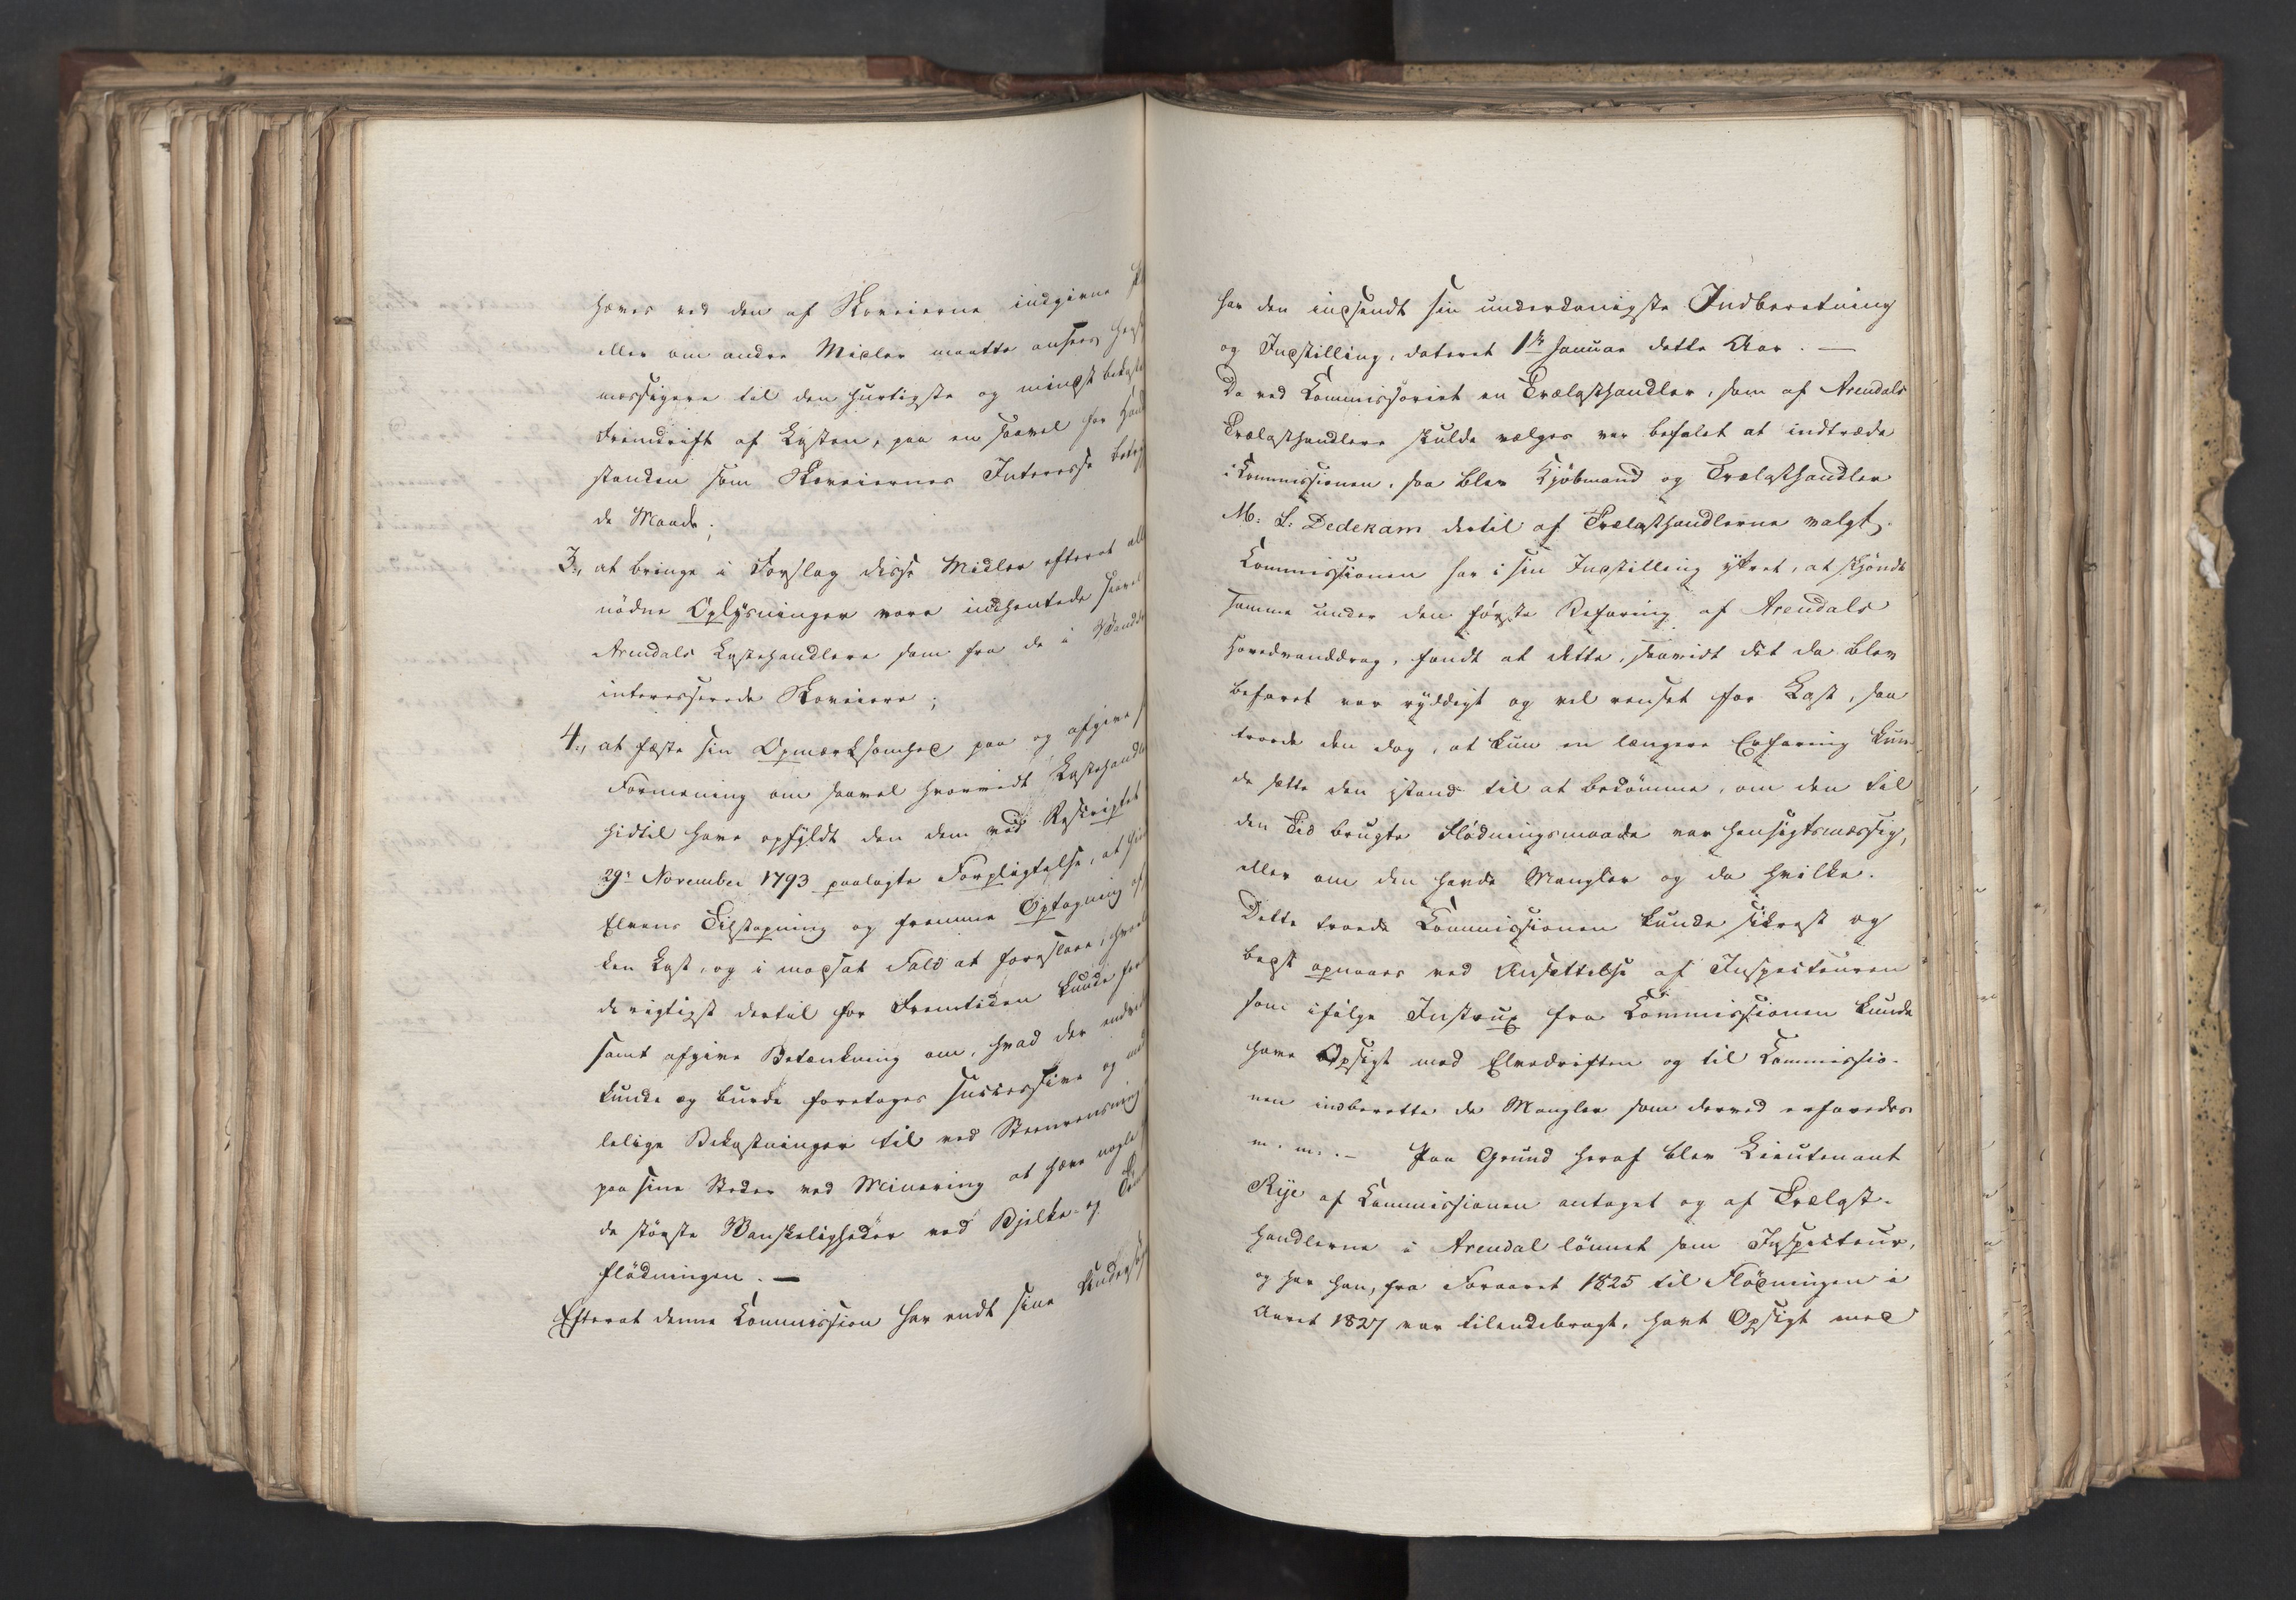 hæves ved den af Skoveierne indgivne
eller om andre Midler maatte ansees
mæssigere til den hurtigste og mindst
Fremdrift af Lasten, paa en saavel for
standen som Skoveiernes Interesse
de Maade;
3., at bringe i Forslag disse Midler efterat
nödne Oplysninger vare indhentede saavel
Arendals Lastehandlere som fra de i
interesserede Skoveiere;
4., at fæste sin Opmærksomhed paa og afgive
Formening om saavel hvorvidt
hidtil have opfyldt den dem ved Rescriptet
29de November 1793 paalagte Forpligtelse, at
Elvens Tilstopning og fremme Optagning af
ken Last, og i modsat Fald at foreslaae,
de rigtigst dertil for Fremtiden kunde
samt afgive Betænkning om, hvad der
kunde og burde foretages successive og
lelige Bekostninger til ved Steenrensning
paa sine Steder ved Minering at hæve nogle
de störste Vanskeligheder ved Bjelke- og
flödningen. —
Efterat denne Commission har endt sine
har den indsendt sin underdanigste Indberetning
og Indstilling, dateret 1ste Januar dette Aar. —
Da ved Commissoriet en Trælasthandler, som af Arendals
Trælasthandlere skulde vælges var befalet at indtræde
i Commissionen, saa blev Kjöbmand og Trælasthandler
M: L: Dedekam dertil af Trælasthandlerne valgt.
Commissionen har i sin Indstilling yttret, at skjöndt
samme under den förste Befaring af Arendals
Hovedvanddrag, fandt at dette, saavidt det da blev
befaret var ryddigt og vel renset for Last, saa
troede den dog, at kun en længere Erfaring kun-
de sætte den istand til at bedömme, om den til
den Tid brugte Flödningsmaade var hensigtsmæssig,
eller om den havde Mangler og da hvilke.
Dette troede Commissionen kunde sikrest og
bedst opnaaes ved Ansættelse af Inspecteuren
som ifölge Instrux fra Commissionen kunde
have Opsigt med Elvedriften og til Commissio-
nen indberette de Mangler som derved erfaredes
m. m. — Paa Grund heraf blev Lieutenant
Rye af Commissionen antaget og af Trælast-
handlerne i Arendal lönnet som Inspecteur,
og har han, fra Foraaret 1825 til Flödningen i
Aaret 1827 var tilendebragt, havt Opsigt med